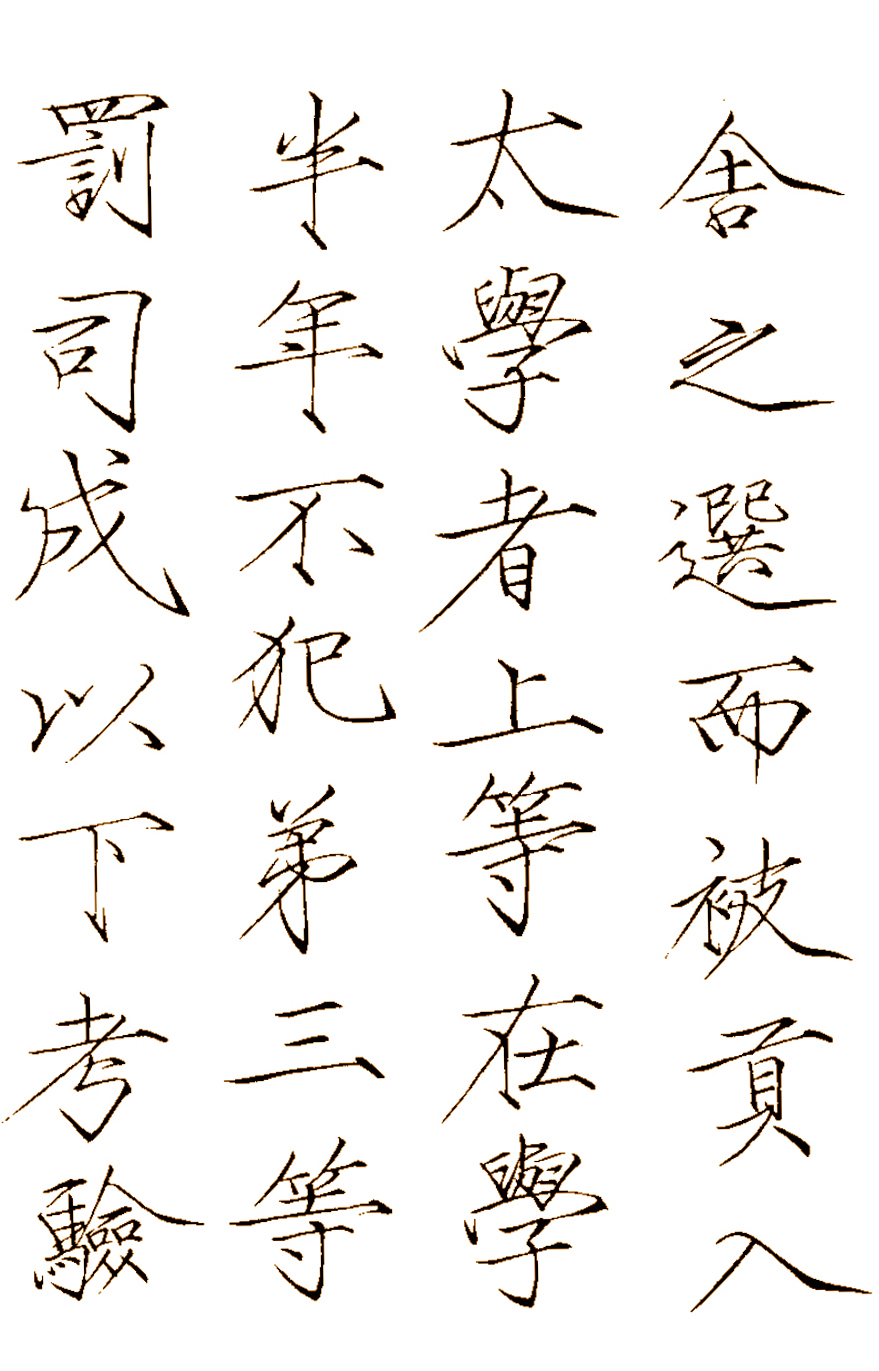 舍之選而被貢入
太學者上等在學
半年不犯弟三等
罰司成以下考驗